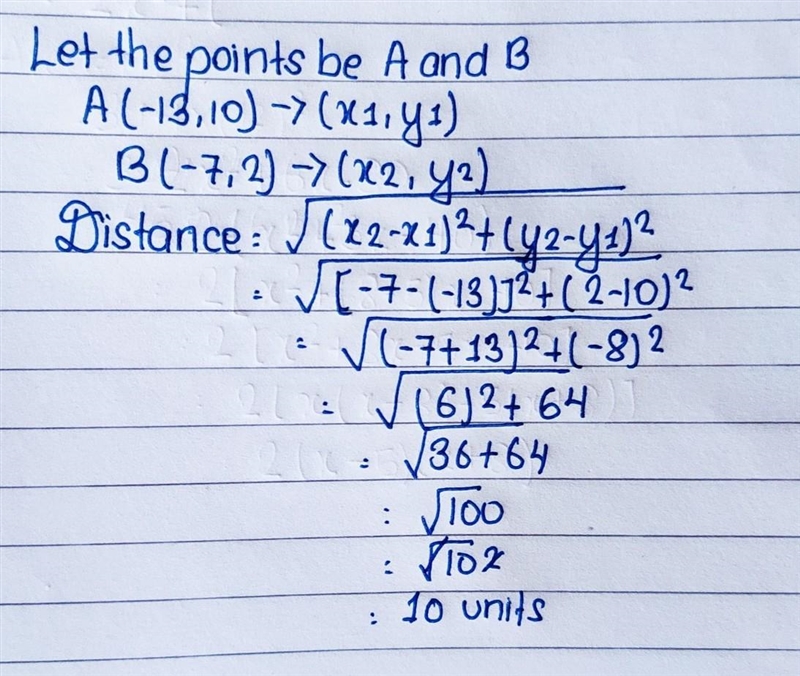 Let the points be A and B
A(-13,10)→(x1,y1)
B(-7,2)→(x2,y2)
Distance = √(x2-x1)²+(y2-y1)²
= √[-7-(-13)]²+(2-10)²
= √(-7+13)²+(-8)²
= √(6)²+64
= √36+64
= √100
= √10²
= 10 units